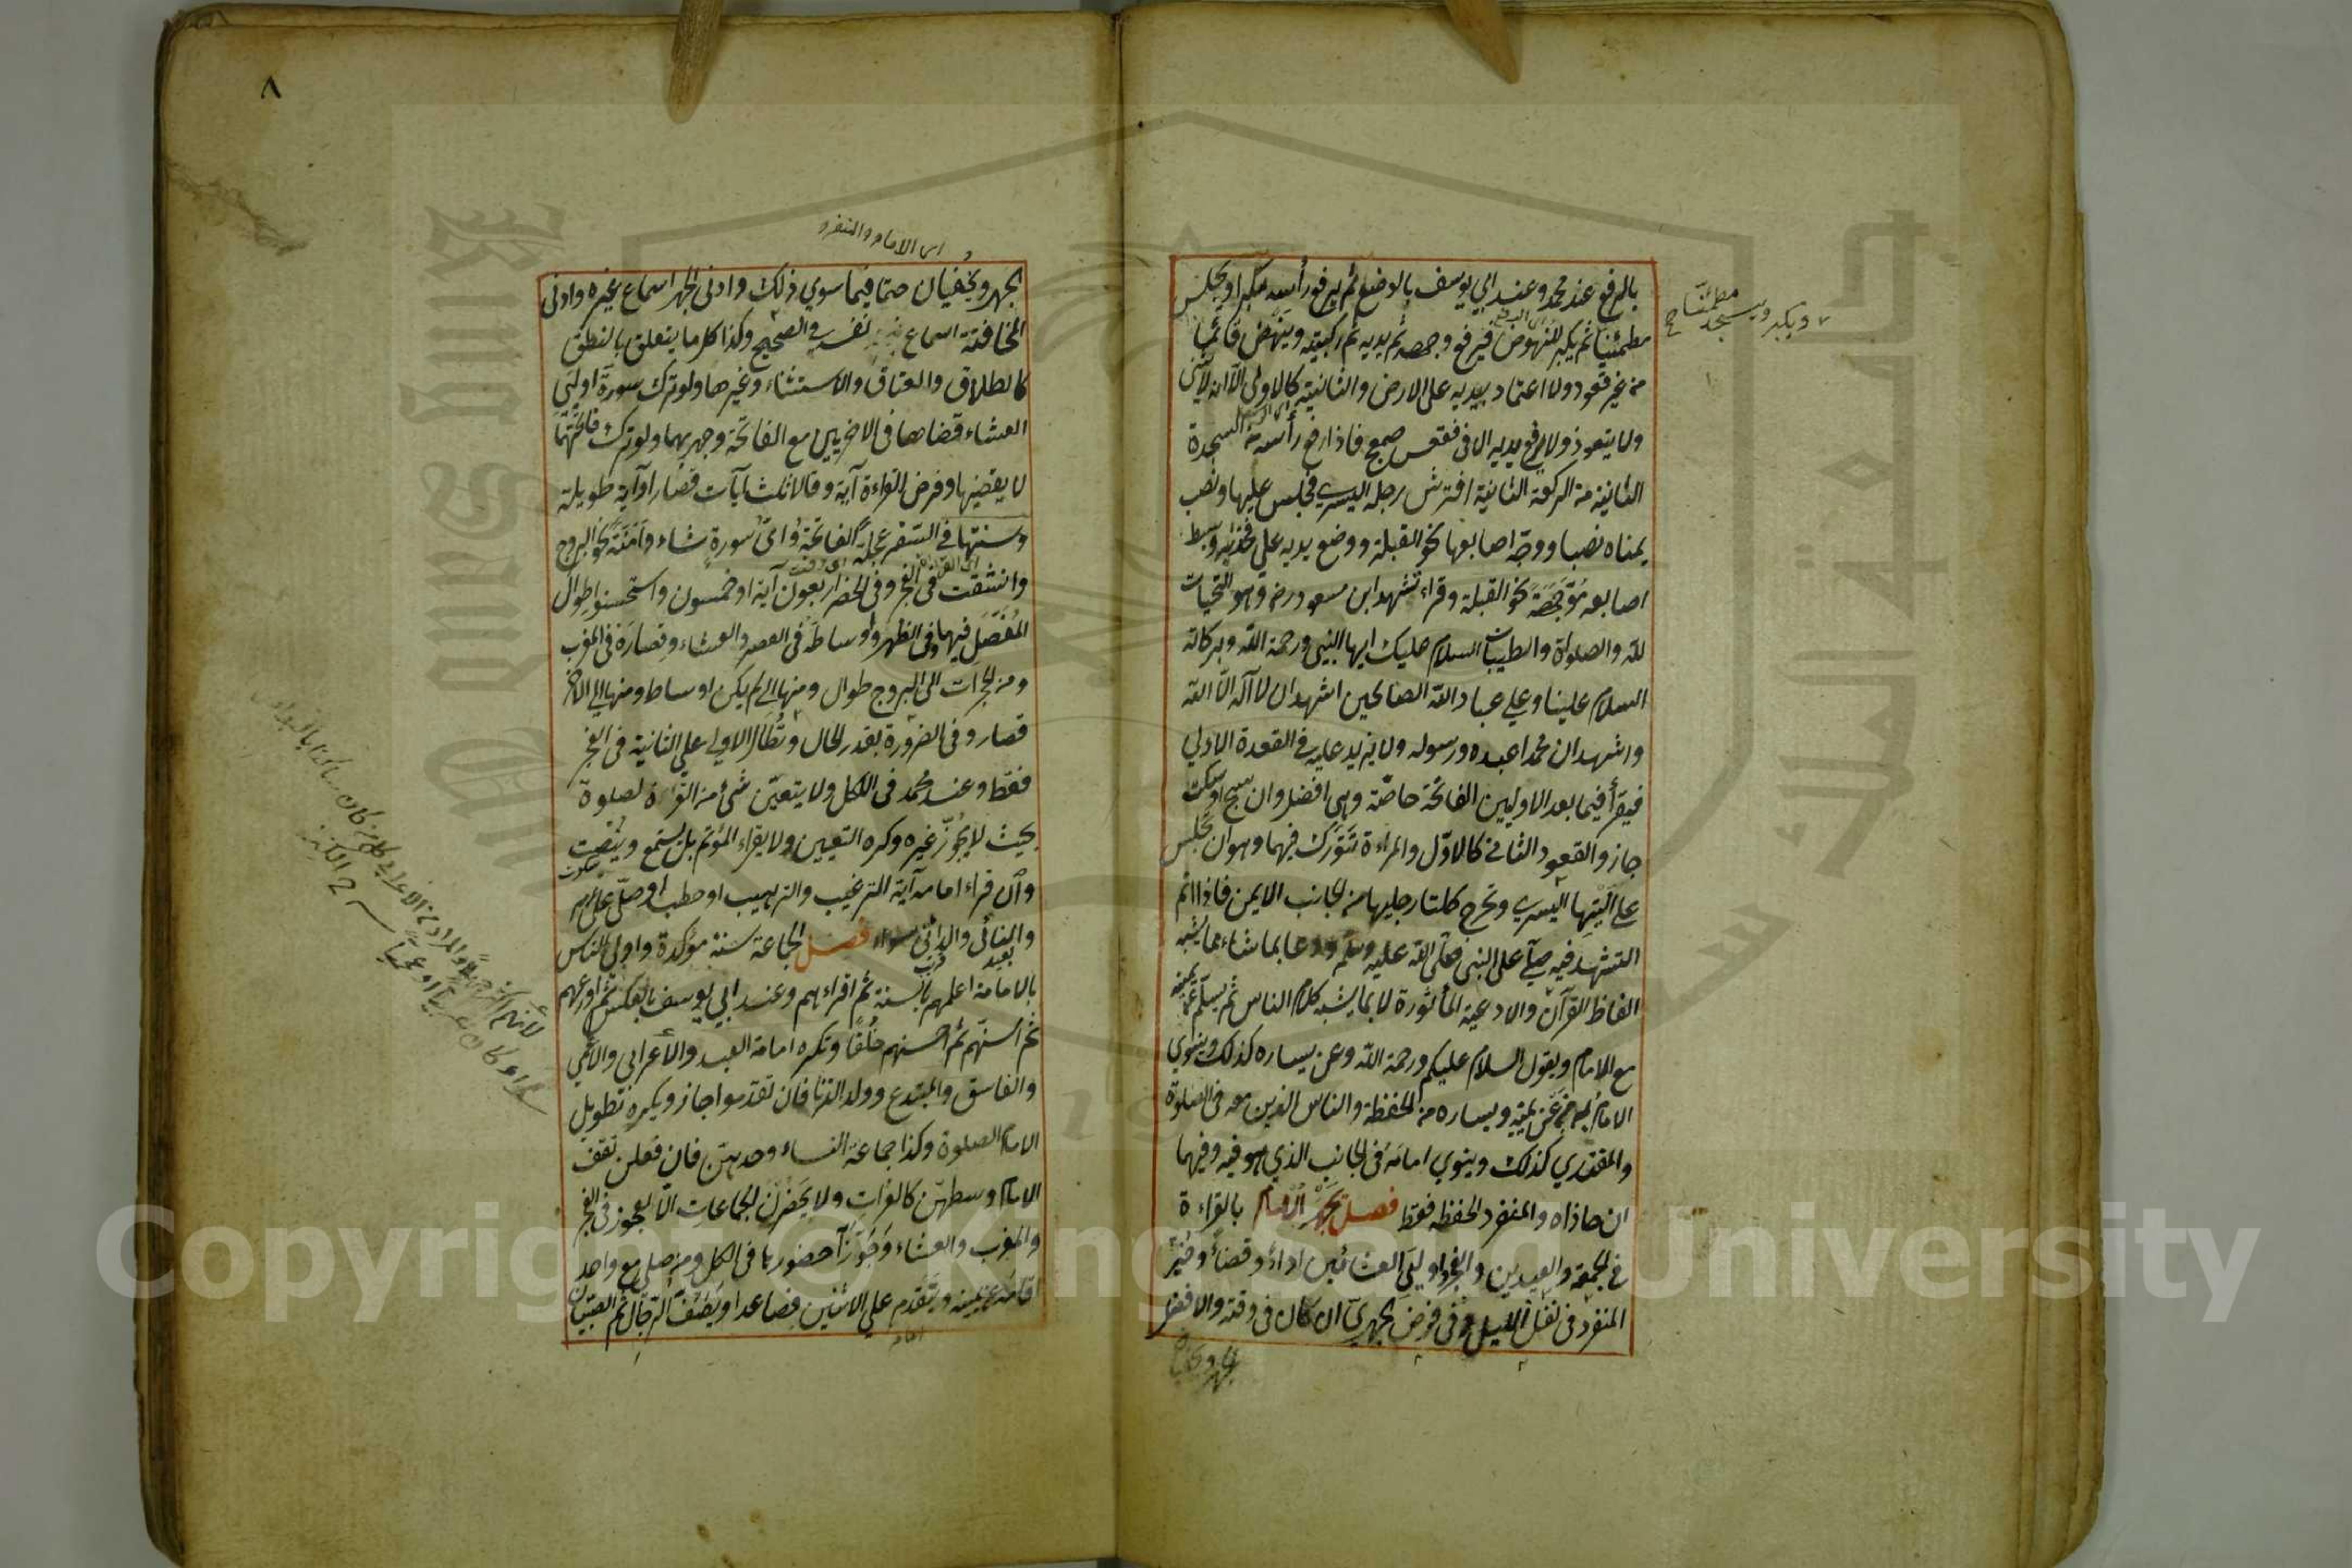 بالرفع عند محمد وعند ابي يوسف بالوضع ثم يرفع رأسه مكبرا ويجلس
مطمئنا ثم يكبر للنهوض فيرفع وجهه ثم يديه ثم ركبتيه وينهض قائما
من غير قعود ولا اعتماد بيديه على الارض والثانية كالاولى الا انه لا يثني
ولا يتعوذ ولا يرفع يديه الا في فقعس صمعج فاذا رفع رأسه من السجدة
الثانية من الركعة الثانية افترش رجله اليسرى فجلس عليها ونصب
يمناه نصبا ووجّه اصابعها نحو القبلة ووضع يديه علي فخذيه وبسط
اصابعه مُوَجَّهَةً نحو القبلة وقراء تشهد ابن مسعود رض وهو التحيات
لله والصلوات والطيبات السلام عليك ايها النبي ورحمة الله وبركاته
السلام علينا وعلي عباد الله الصالحين اشهد ان لا آله الّا الله
واشهد ان محمدا عبده ورسوله ولا يزيد عليه في القعدة الاولي
فيقرأ فيما بعد الاوليين الفاتحة خاصّة وهي افضل وان سبح او سكت
جاز والقعود الثاني كالاوّل والمراءة تَتَوَرَّك فيهما وهو ان تجلس
علي اَلْيَتِها اليسري وتخرج كلتا رجليها من الجانب الايمن فاذا اتم
التشهد فيه صلّى على النبي صلّى الله عليه وسلّم ودعا بما شاء مما يشبه
الفاظ القرآن والادعية المأثورة لا بما يشبه كلام الناس ثم يسلّم عن يمينه
مع الامام ويقول السلام عليكم ورحمة الله وعن يساره كذلك وينوي
الامام عن يمينه ويساره من الحفظة والناس الذين معه في الصلوة
والمقتدي كذلك وينوي امامَه في الجانب الذي هو فيه وفيهما
ان حاذاه والمنفرد الحفظه فقط فصل يجهر الامام بالقراءة
في الجمعة والعيدين والفجر واوليَي العشائين اداءً وقضاءً وخُيِّر
المنفرد في نفل الليل وفي فرض الجهريّ ان كان في وقته والافضل
ويكبر ويسجد مطمئنا صح
٨
اي الامام والمنفرد
الجهر ويُخفيان حتما فيما سوي ذلك وادنى الجهر اسماع غيره وادنى
المخافتة اسماع نفسه في الصحيح وكذا كل ما يتعلق بالنطق
كالطلاق والعتاق والاستثناء وغيرها ولو ترك سورة اوليَي
العشاء قضاها في الاخريين مع الفاتحة وجهر بهما ولو ترك فاتحتهما
لا يقضيها وفرض القراءة آية وقالا ثلث آيات قصار او آية طويلة
وسنتها في السفر عجلةً الفاتحةُ وايّ سورةٍ شاء وآمَنَةً نحو البروج
وانشقت في الفجر وفي الحضر اربعون آية او خمسون واستحسنوا طوال
المُفصَّل فيها وفي الظهر واوساطَه في العصر والعشاء وقصارَه في المغرب
ومن الحجرات الى البروج طوال ومنها الي لم يكن اوساط ومنها الي الآخر
قصار وفي الضرورة بقدر الحال وتُطال الاولي علي الثانية في الفجر
فقط وعند محمد في الكل ولا يتعيّن شئ من القراءة لصلوة
بحيث لا يجوز غيره وكره التعيين ولا يقراء المؤتم بل يستمع ويُنصِت
وان قراء امامه آية الترغيب والترهيب او خطب او صلّى على
والنائى والداني سواء فصل الجماعة سنة مؤكدة واولى الناس
بعيد قريب
بالامامة اعلمهم بالسنة ثم اقراءهم وعند ابي يوسف بالعكس ثم اورعهم
ثم اسنّهم ثم احسنهم خُلُقًا وتكره امامة العبد والأعرابي والاعمي
والفاسق والمبتدع وولد الزنا فان تقدموا جاز ويكره تطويل
الامام الصلوة وكذا جماعة النساء وحدهنّ فان فعلن تقف
الامام وسطهنّ كالعُراة ولا يَحْضُرْن الجماعات الّا العجوز في الفجر
والمغرب والعشاء وجَوَّزا حضورها في الكل ومن صلى مع واحد
اقامه عن يمينه ويتقدم علي الاثنين فصاعدا ويَصُفّ الرجال ثم الصبيان
امام